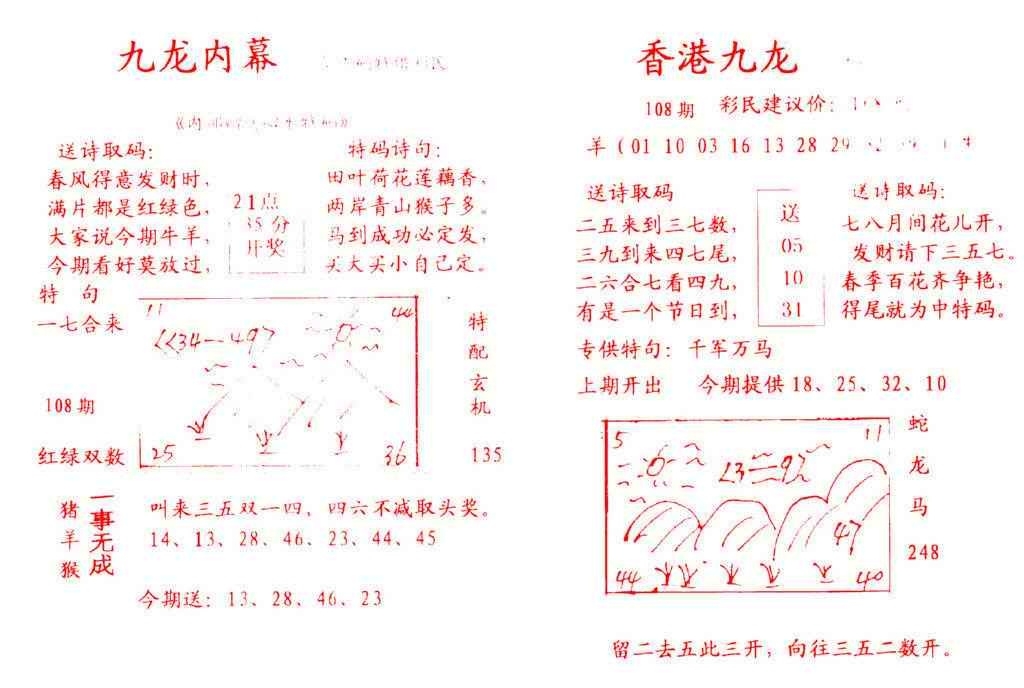 九龙内幕
送诗取码:
春风得意发财时,
满片都是红绿色,
大家说今期牛羊,
今期看好莫放过,
21点
35分
开奖
特码诗句:
田叶荷花莲藕香、
两岸青山猴子多。
马到成功必定发,
买大买小自己定。
特 句
一七合来
108期
红绿双数
11
44
<<34--497
25
36
特
配
玄
机
135
猪
羊
猴
一事无成
叫来三五双一四,四六不减取头奖。
14、13、28、46、23、44、45
今期送: 13、28、46、23
香港九龙
108期 彩民建议价:
羊(01 10 03 16 13 28 29
送诗取码
二五来到三七数,
三九到来四七尾,
二六合七看四九,
有是一个节日到,
送
05
10
31
送诗取码:
七八月间花儿开,
发财请下三五七。
春季百花齐争艳,
得尾就为中特码。
专供特句: 千军万马
上期开出 今期提供18、25、32、10
5
11
47
44
40
蛇
龙
马
248
留二去五此三开,向往三五二数开。